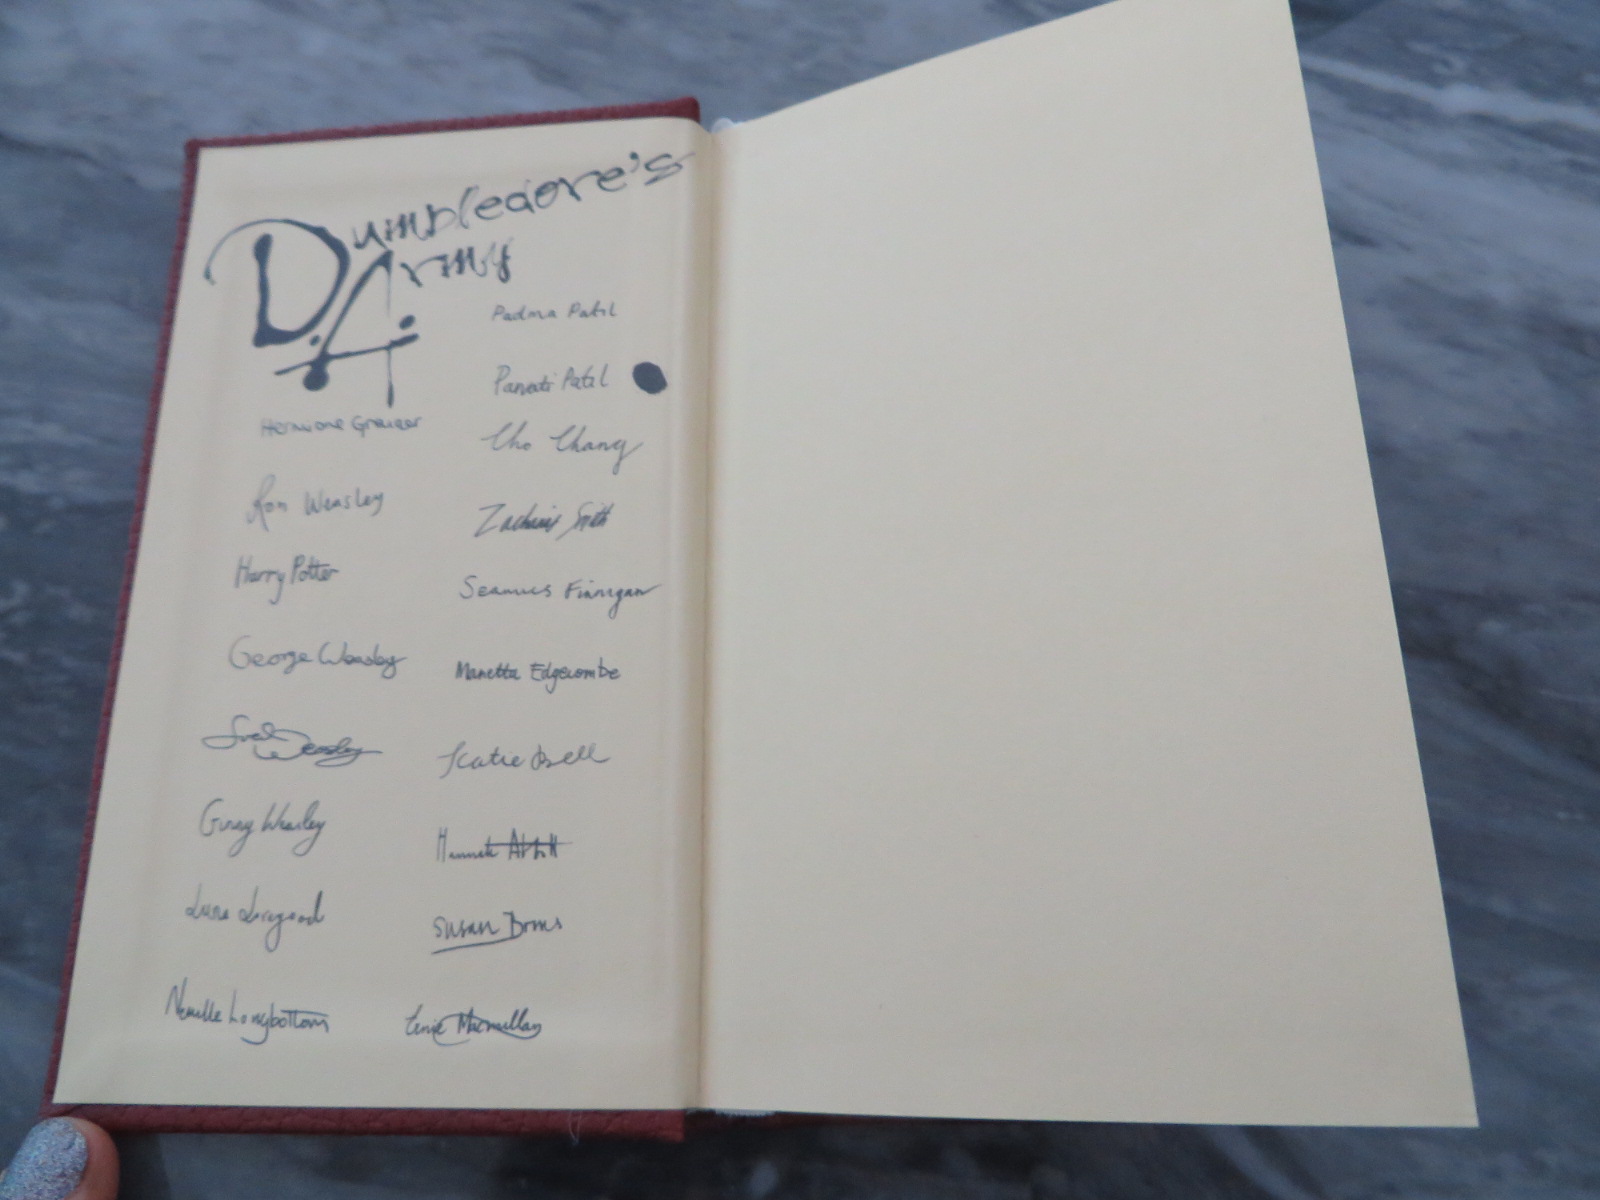 Dumbledore's
Army
D.A.
Hermione Granger
Ron Weasley
Harry Potter
George Weasley
Fred Weasley
Ginny Weasley
Luna Lovegood
Neville Longbottom
Padma Patil
Parvati Patil
Cho Chang
Zacharias Smith
Seamus Finnigan
Marietta Edgecombe
Katie Bell
Hannah Abbott
Susan Bones
Ernie Macmillan